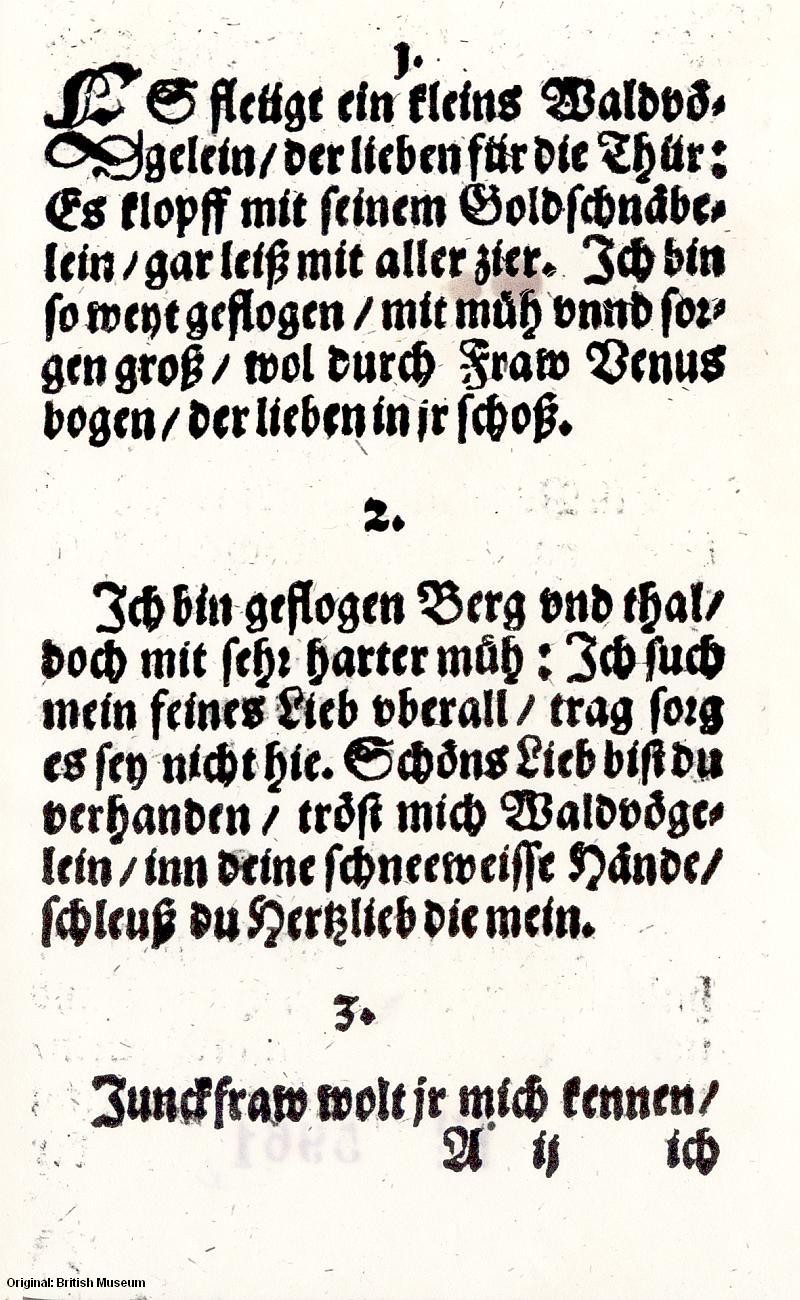 1.
ES fleugt ein kleins Waldvö-
gelein/ der lieben für die Thür:
Es klopff mit seinem Goldschnäbe-
lein / gar leiß mit aller zier. Ich bin
so weyt geflogen / mit müh vnnd sor-
gen groß / wol durch Fraw Venus
bogen / der lieben in jr schoß.
2.
Ich bin geflogen Berg vnd thal/
doch mit sehr harter müh : Ich such
mein feines Lieb vberall / trag sorg
es sey nicht hie. Schöns Lieb bist du
verhanden / tröst mich Waldvöge-
lein / inn deine schneeweisse Hände/
schleuß du Hertzlieb die mein.
3.
Junckfraw wolt jr mich kennen/
A ij ich
Original: British Museum